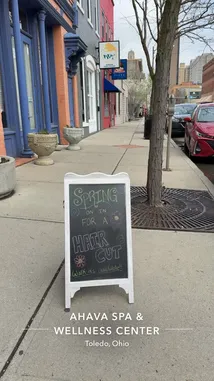 SPRING
IN
FOR A
HAIR
CUT
AHAVA SPA &
WELLNESS CENTER
Toledo, Ohio